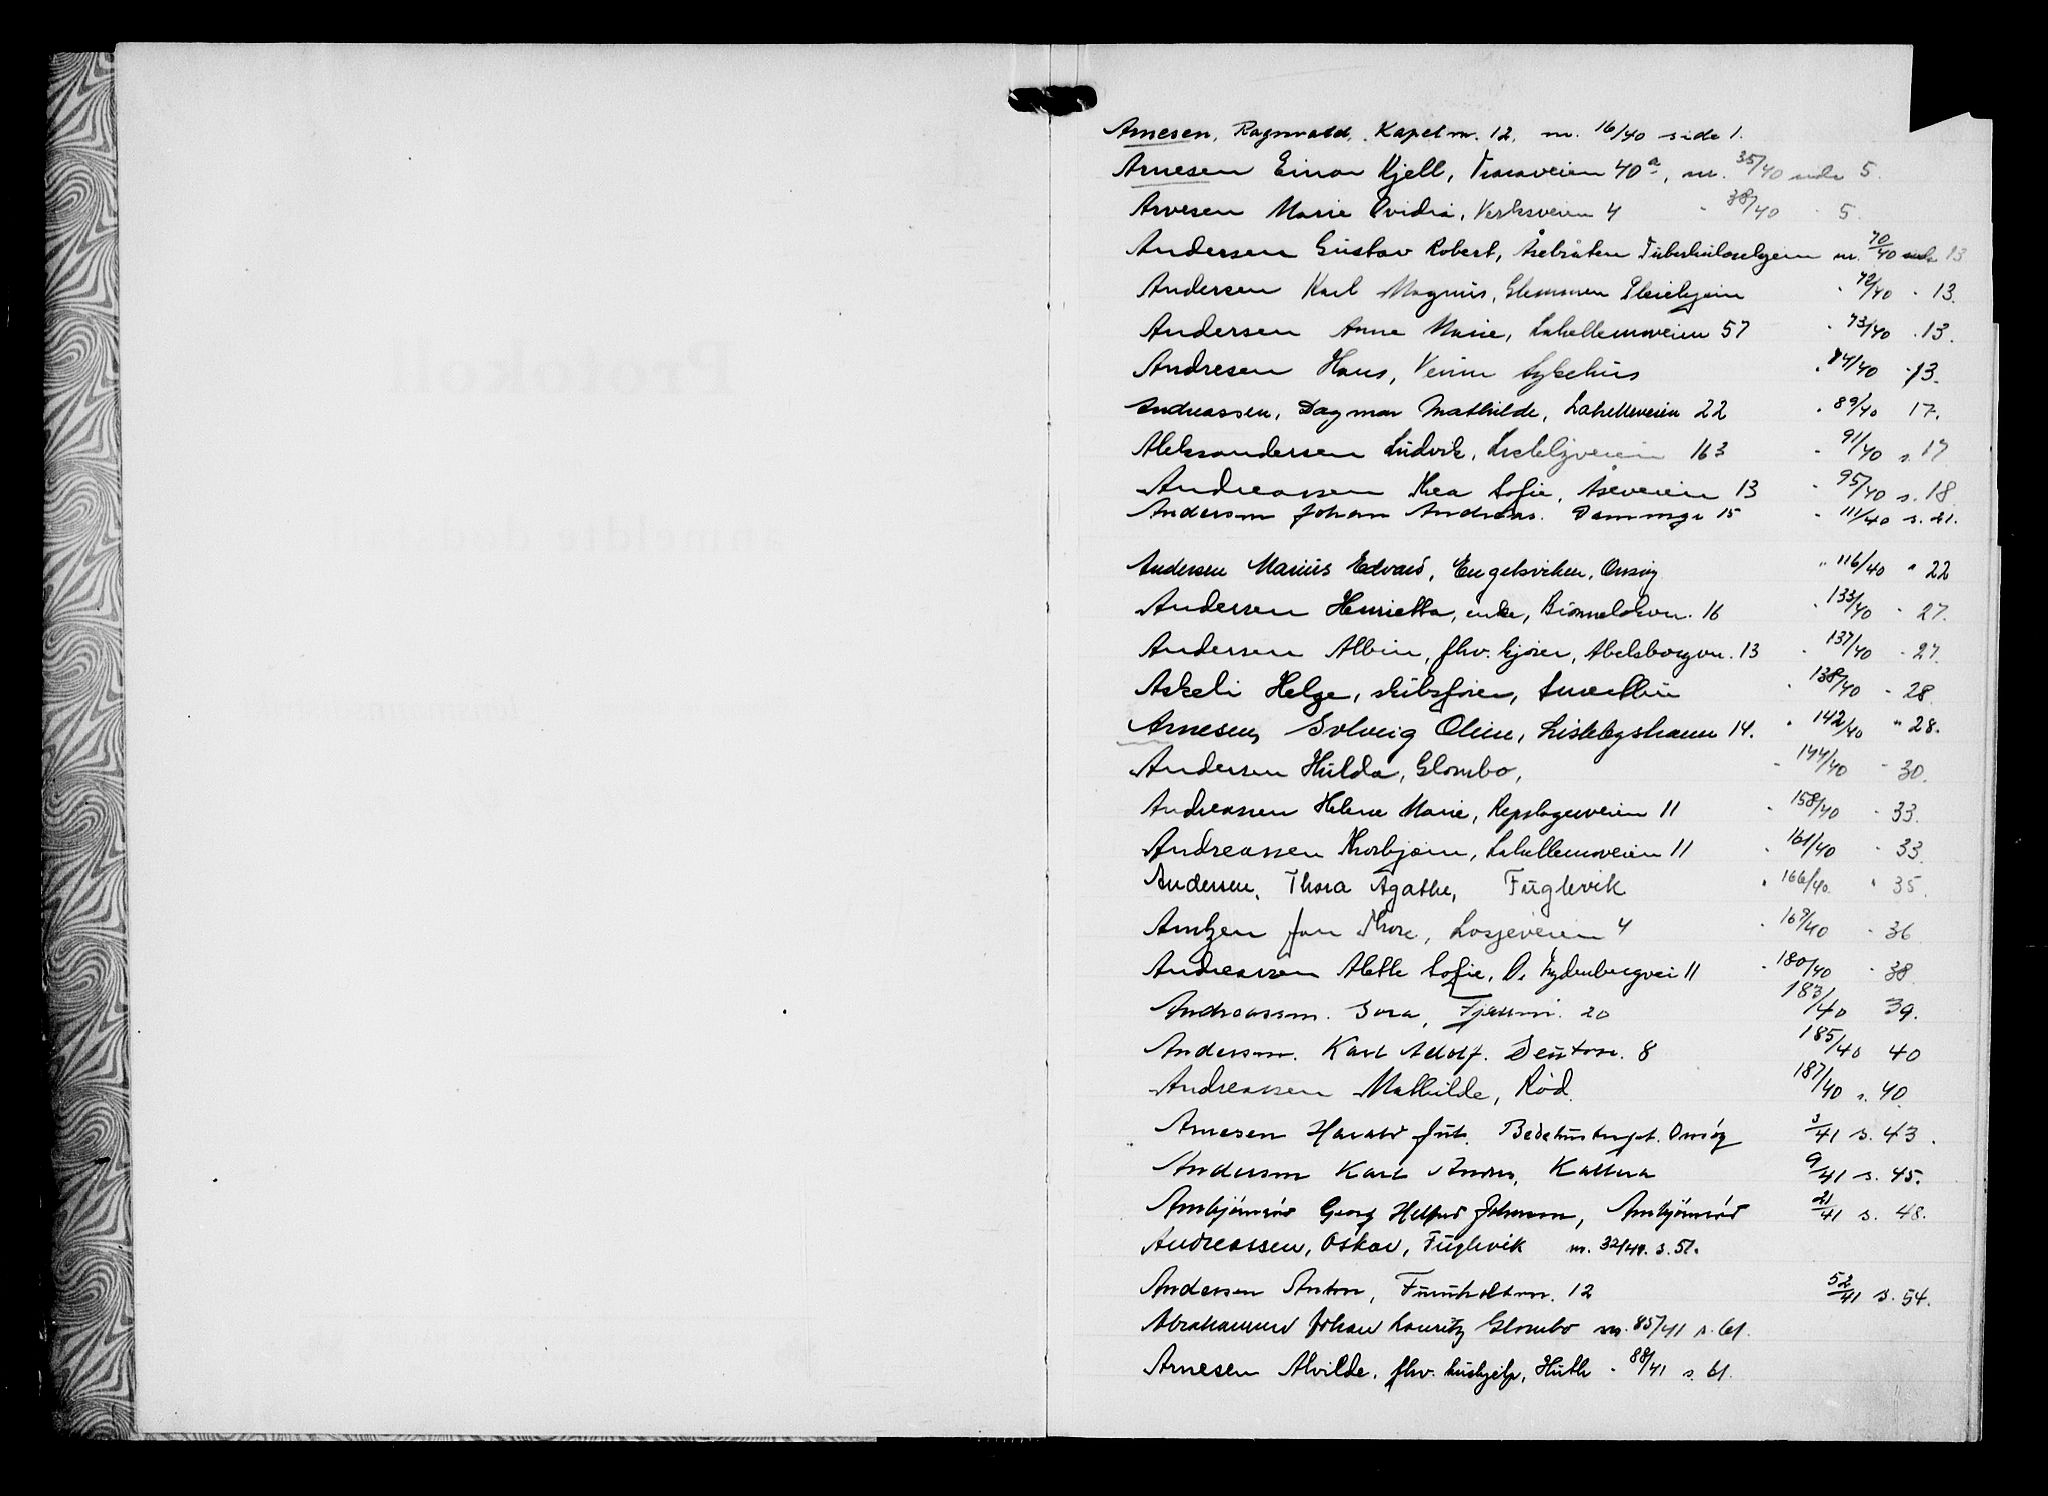 Arnesen, Ragnvald, Kapelv. 12, nr. 16/40 side 1.
Arnesen Einar Kjell, Traraveien 40a, nr. 35/40 side 5.
Arvesen Marie Ovidia, Verksveien 4 " 38/40 " 5.
Andersen Gustav Robert, Åsebråten Tuberkulosehjem nr. 70/40 side 13
Andersen Karl Magnus, Glemmen Pleiehjem " 72/40 " 13.
Andersen Anne Marie, Lahellemoveien 57 " 73/40 " 13.
Andresen Hans, Veum Sykehus " 74/40 " 13.
Andreassen, Dagmar Mathilde, Lahelleveien 22 " 89/40 17.
Aleksandersen Ludvik, Lislebyveien 163 " 91/40 s. 17
Andreassen Thea Sofie, Åseveien 13 " 95/40 s. 18
Andersen Johan Andreas. Dammyr 15 " 111/40 s. 21.
Andersen Marius Edvard, Engelsviken, Onsøy " 116/40 " 22
Andersen Henrietta, enke, 16 " 133/40 " 27.
Andersen Albin, fhv. kjører, Abelsborgvn. 13 " 137/40 " 27.
Askeli Helge, skibsfører, " 138/40 " 28.
Arnesen, Solveig Oline, Lislebystrann 14. " 142/40 " 28.
Andersen Hulda, Glombo, " 144/40 " 30.
Andreassen Helene Marie, Repslagerveien 11 " 158/40 " 33.
Andreassen Thorbjørn, Lahellemoveien 11 " 161/40 " 33.
Andersen, Thora Agathe, Fuglevik " 166/40 " 35.
Arntzen Jan Thore, Losjeveien 4 " 169/40 " 36
Andreassen Alette Sofie, O. Rydenbergvei 11 " 180/40 " 38
Andreassen. Sara, 20 183/40 39.
Andersen. Karl Adolf. 8 185/40 40
Andreassen Mathilde, Rød. 187/40 s. 40.
Arnesen Harald Juls. Onsøy 3/41 s. 43.
Andersen Karl Kallera 9/41 s. 45.
Arnbjörnsröd Georg Helfred Johansen, Arnbjörnsröd 21/41 s. 48.
Andreassen, Oskar, Fuglevik nr. 32/41. s. 51.
Andersen Anton, Furuholtvn. 12 52/41 s. 54.
Abrahamsen Johan Lauritz Glombo nr. 85/41 s. 61.
Arnesen Alvilde, fhv. hushjelp, Huth " 88/41 s. 61.